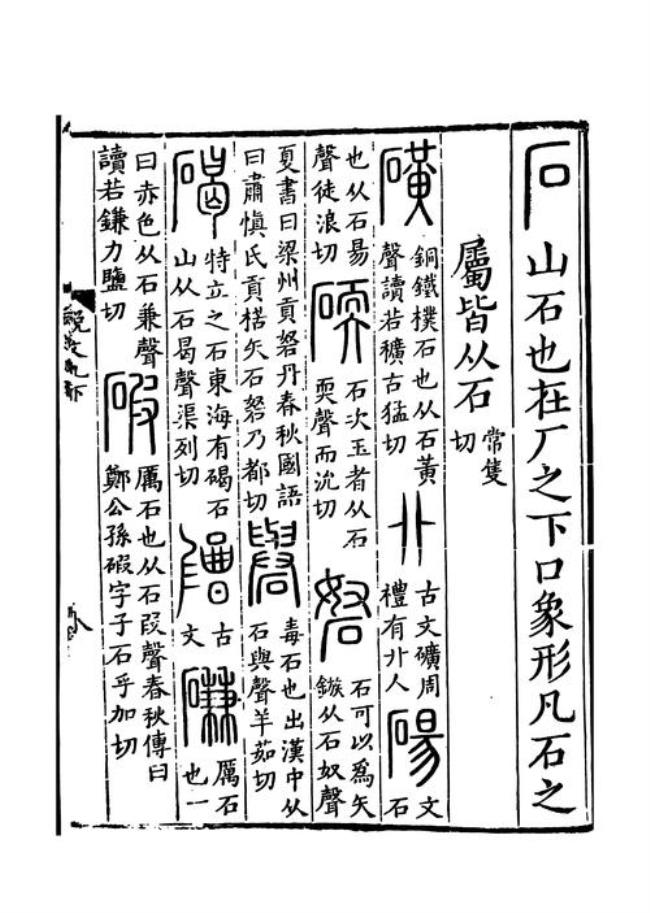 石山石也在厂之下口象形凡石之
屬皆从石常隻切
磺銅鐵樸石也从石黃聲讀若穬古猛切卝古文礦周禮有卝人碭文石
也从石昜聲徒浪切碝石次玉者从石耎聲而沇切砮石可以爲矢鏃从石奴聲
夏書曰梁州貢砮丹春秋國語曰肅愼氏貢楛矢石砮乃都切礜毒石也出漢中从石與聲羊茹切
碣特立之石東海有碣石山从石曷聲渠列切古文磏厲石也一
曰赤色从石兼聲讀若鎌力鹽切碬厲石也从石叚聲春秋傳曰鄭公孫碬字子石乎加切